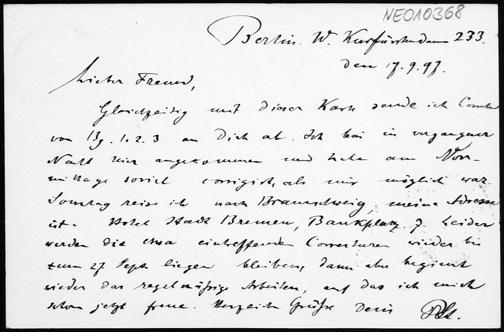 NE010368
Berlin. W. Kurfürstendamm 233.
den 17.9.97.
Lieber Freund,
Gleichzeitig mit dieser Karte sende ich
von Bg. 1. 2. 3 an Dich ab. Ich bin in vergangener
Nacht hier angekommen und habe am Vor-
mittage soviel corrigirt, als mir möglich war
Sonntag reise ich nach Braunschweig, meine Adresse
ist Hotel Stadt Bremen, Bankplatz 7. Leider
werden die etwa eintreffenden Correcturen wieder bis
zum 27 Sept. liegen bleiben, dann aber beginnt
wieder das regelmäßige Arbeiten, auf das ich mich
schon jetzt freue. Herzliche Grüße Dein